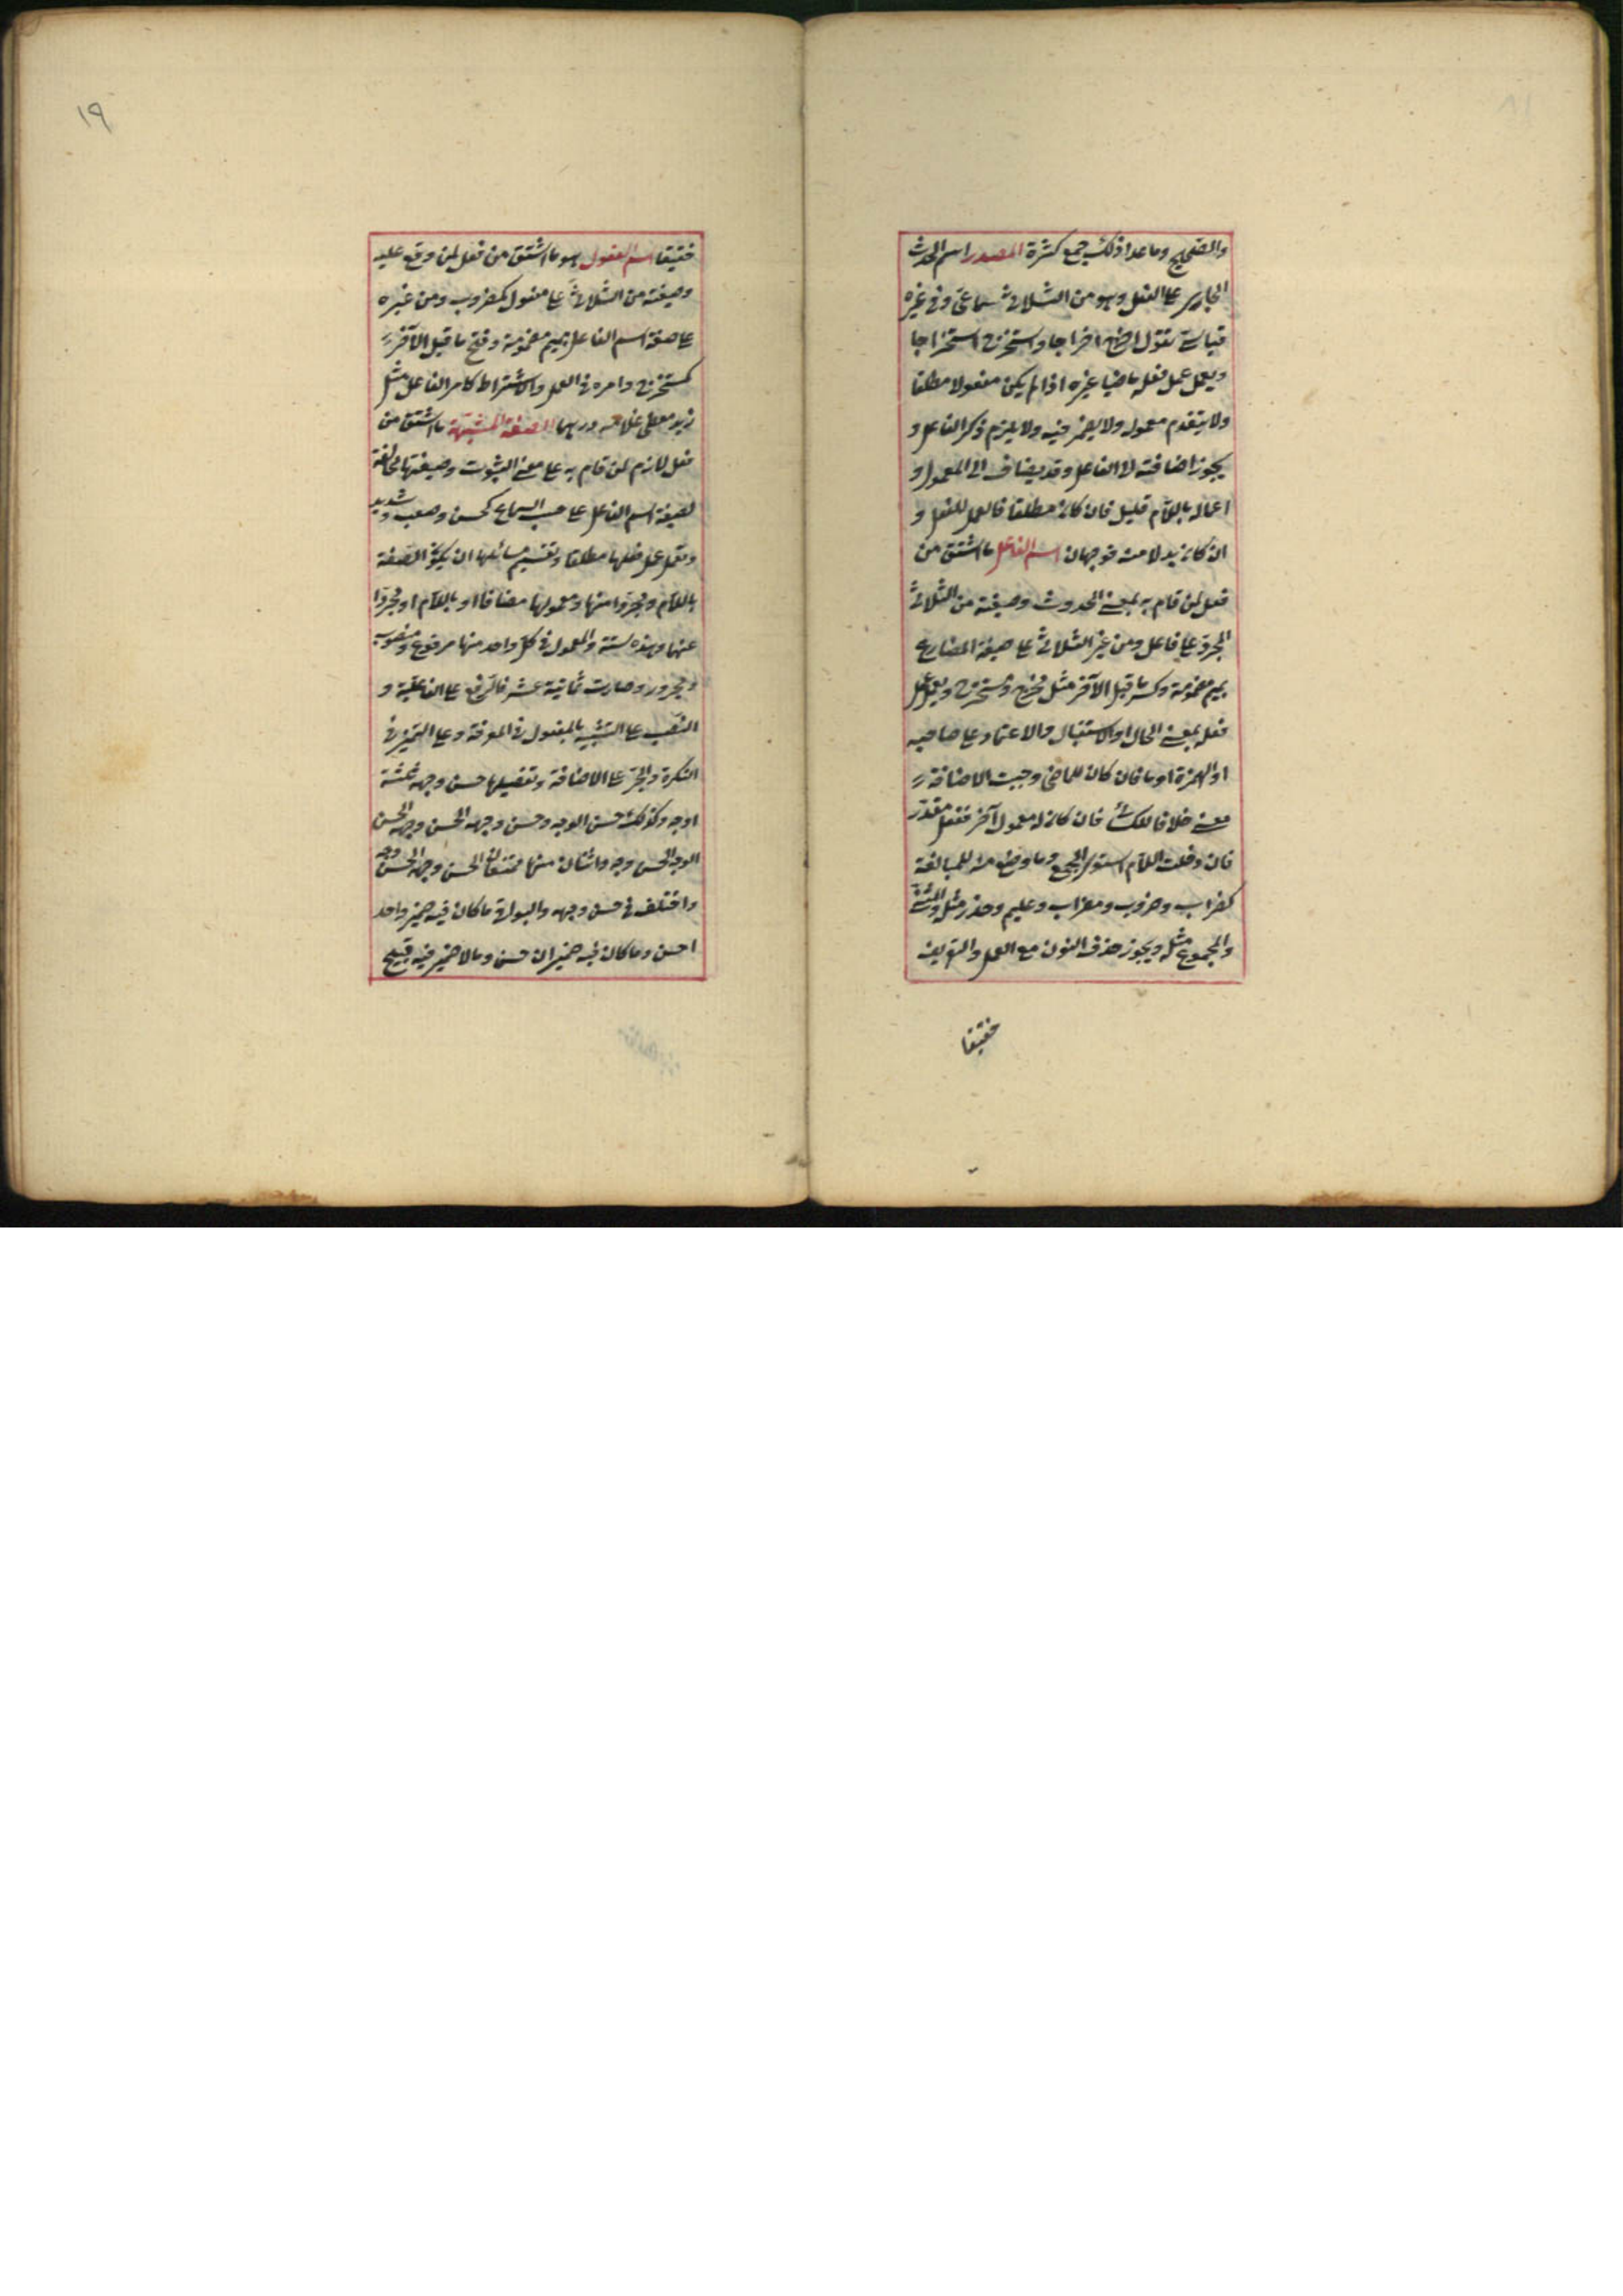 والصحيح وما عدا ذلك جمع كثرة المصدر اسم الحدث
الجارى على الفعل وهو من الثلاثى سماعى وفى غيره
قياسى تقول اخرج اخراجا واستخرج استخراجا
ويعمل عمل فعله ماضيا غيره اذا لم يكن مفعولا مطلقا
ولا يتقدم معموله ولا يضمر فيه ولا يلزم ذكر الفاعل و
يجوز اضافته الى الفاعل وقد يضاف الى المعمول و
اعماله باللام قليل فان كان مطلقا فالعمل للفعل و
ان كان بدلا منه فوجهان اسم الفاعل ما اشتق من
فعل لمن قام به بمعنى الحدوث وصيغته من الثلاثى
المجرد على فاعل ومن غير الثلاثى على صيغة المضارع
بميم مضمومة وكسر ما قبل الآخر مثل مخرج ومستخرج ويعمل عمل
فعله بمعنى الحال او الاستقبال والاعتماد على صاحبه
او الهمزة او ما فان كان للماضى وجبت الاضافة
معنى خلافا للكسائى فان كان له معمول آخر فبفعل مقدر
فان دخلت اللام استوى الجميع وما وضع منه للمبالغة
كضراب وضروب ومضراب وعليم وحذر مثله والمثنى
والمجموع مثله ويجوز حذف النون مع العمل والتعريف
تخفيفا
١٩
تخفيفا اسم المفعول هو ما اشتق من فعل لمن وقع عليه
وصيغته من الثلاثى على مفعول كمضروب ومن غيره
على صيغة اسم الفاعل بميم مضمومة وفتح ما قبل الآخر
كمستخرج وامره فى العمل والاشتراط كامر الفاعل مثل
زيد معطى غلامه درهما الصفة المشبهة ما اشتق من
فعل لازم لمن قام به على معنى الثبوت وصيغتها مخالفة
لصيغة اسم الفاعل على حسب السماع كحسن وصعب وشديد
وتعمل عمل فعلها مطلقا وتقسيم مسائلها ان يكون الصفة
باللام ومجردا منها ومعمولها مضافا او باللام او مجردا
عنها وهذه ستة والمعمول فى كل واحد منها مرفوع ومنصوب
ومجرور وصارت ثمانية عشر فالرفع على الفاعلية و
النصب على التشبيه بالمفعول فى المعرفة وعلى التميز فى
النكرة والجر على الاضافة وتفصيلها حسن وجهه ثلثة
اوجه وكذلك حسن الوجه وحسن وجه الحسن وجهه الحسن
الوجه الحسن وجه واثنان منها ممتنعان الحسن وجهه الحسن وجه
واختلف فى حسن وجهه والبواقى ما كان فيه ضمير واحد
احسن وما كان فيه ضميران حسن وما لا ضمير فيه قبيح